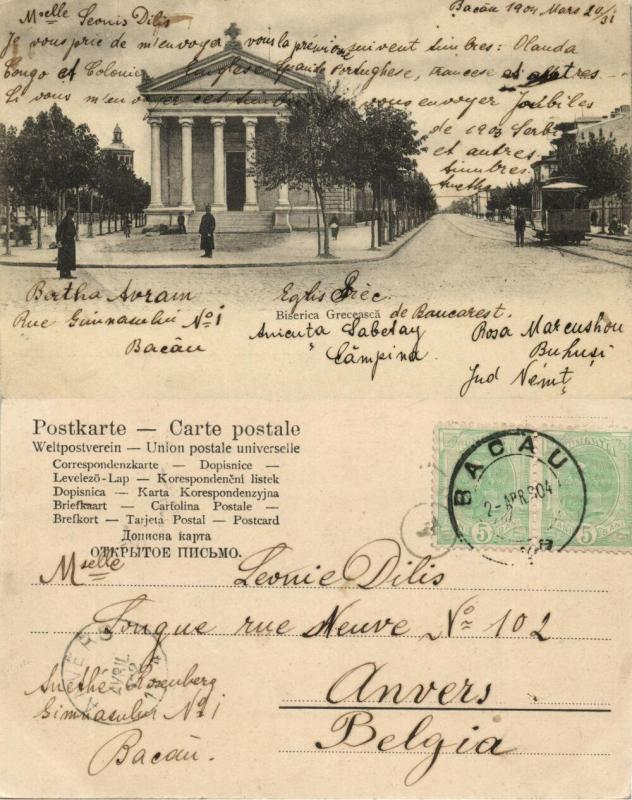 Bacău 1904 Mars 20/31
Mselle Leonis Dilis
Je vous prie de m'envoyer vous la suivent timbres: Olanda
Congo et Colonie Anglese Portughese, Francese et
Si vous m'envoyer cet vous envoyer Joubiles
de 1903 Serbi
et autres
timbres.
Anethe
Bertha Avram
Rue Gimnasului No 1
Bacău
Eglis Grèc.
Biserica Grecească
de Boucarest.
Anicuta Sabetay
" Câmpina
Rosa Marcushon
Buhuși
Jud Nemț
Postkarte — Carte postale
Weltpostverein — Union postale universelle
Correspondenzkarte — Dopisnice —
Levelező-Lap — Korespondenční lístek
Dopisnica — Karta Korespondenzyjna
Briefkaart — Cartolina Postale —
Brefkort — Tarjeta Postal — Postcard
Дописна карта
ОТКРЫТОЕ ПИСЬМО.
BACAU
2-APR 904
5 5
Mselle Leonie Dilis
Longue rue Neuve No 102
Anvers
Belgia
ANVERS
AVRIL
Anethé Rosenberg
Gimnasului No 1
Bacău.